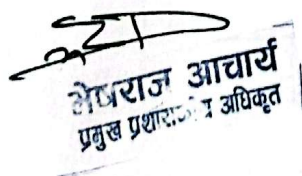 भेषराज आचार्य
प्रमुख प्रशासकीय अधिकृत